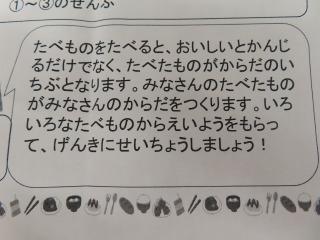 ①～③のせんぶ
たべものをたべると、おいしいとかんじ
るだけでなく、たべたものがからだのい
ちぶとなります。みなさんのたべたもの
がみなさんのからだをつくります。いろ
いろなたべものからえいようをもらっ
て、げんきにせいちょうしましょう！